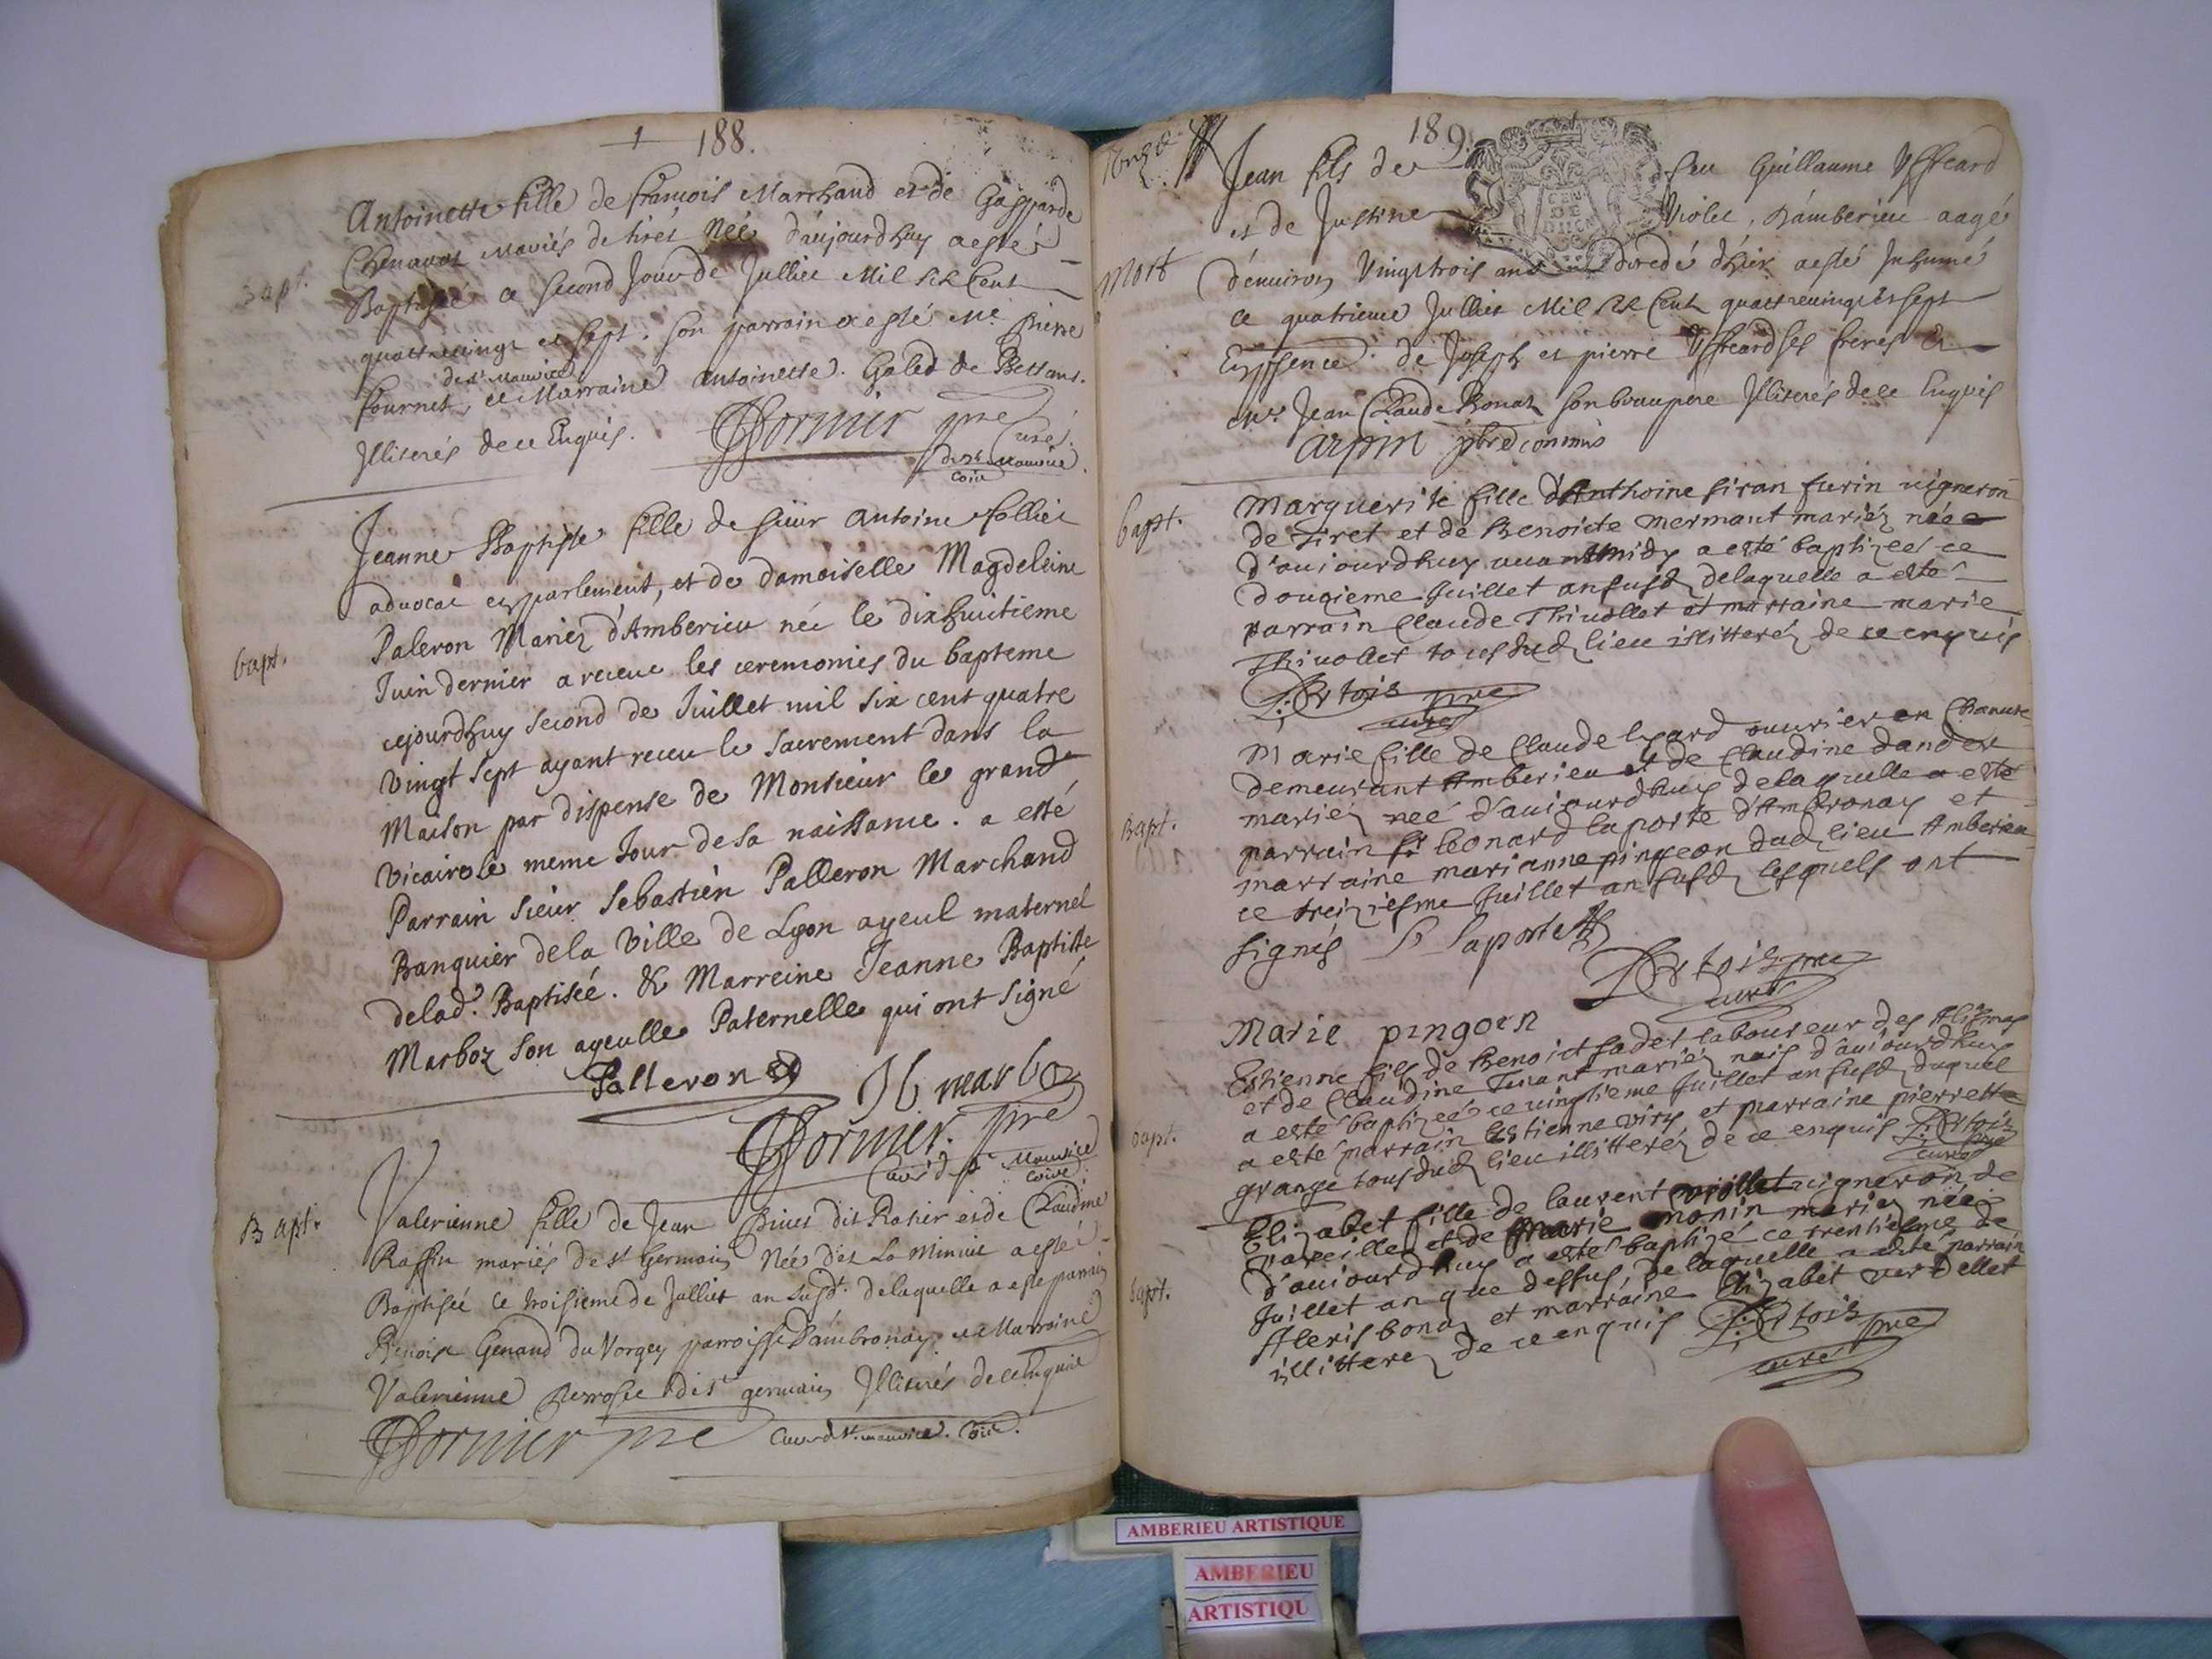 188.
Antoinette fille de francois Marchand et de Gasparde
Chenavas Mariés de tiret Née d'aujourdhuy a esté
Bapt.
Baptisée ce second Jour de Jullie Mil six Cent
quattrevingt et sept. son parrain a esté Me pierre
de st Maurice
fournet, et Marraine antoinette. Goled de Bettans.
Illiterés de ce Enquis. Dormier pre Curé
de st Maurice
Jeanne Baptiste fille de sieur Antoine follie
advocat en parlement, et de damoiselle Magdeleine
Paleron Mariez d'Amberieu née le dixhuitieme
bapt.
Juin dernier a receue les ceremonies du bapteme
cejourdhuy second de Juillet mil six cent quatre
vingt sept ayant receu le sacrement dans la
Maison par dispense de Monsieur le grand
vicaire le meme Jour de sa naissance. a esté
Parrain sieur Sebastien Palleron Marchand
Banquier dela Ville de Lyon ayeul maternel
delad.e Baptisée. & Marreine Jeanne Baptiste
Marboz son ayeulle Paternelle qui ont signé
Palleron Marboz
Dormier. pre
Curé d st Maurice
Bapt.
Valerienne fille de Jean dit Ratier et de Claudine
Raffin mariés de st Germain Née dez La Minuit a esté
Baptisée ce troisieme de Jullie an susd. de laquelle a esté parrain
Benoist Genaud du Vorgey parroisse d'ambronay et Marraine
Valerienne de st germain Illiterés de ce Enquis
Dormier pre Curé d st. maurice.
189.
Jean fils de feu Guillaume
et de Justine Violet, d'amberieu aagé
Mort
d'environ Vingt trois ans decedé d'hier a esté Inhumé
ce quatrieme Jullie Mil six Cent quattrevingt et sept
En presence de Joseph et pierre ses freres &
Jean Claude Bonaz son beaupere Illiterés de ce Enquis
arpin pbre commis
bapt.
Marguerite fille d'Anthoine siran furin vigneron
de Tiret et de Benoicte mermant mariéz née
d'aujourdhuy avantmidy a esté baptizeé ce
douzieme Juillet an susd de laquelle a esté
parrain Claude Thivollet et marraine marie
Thivollet tous dud lieu illitteréz de ce enquis
pre
curé
Marie fille de Claude ouvrier en Chanvre
demeurant Amberieu et de Claudine dandel
Bapt.
mariéz neé d'aujourdhuy delaquelle a esté
parrain sr Leonard laporte d'Ambronay et
marraine marianne pingeon dud lieu Amberieu
ce treiziesme Juillet an susd lesquels ont
signés Laporte
pre
curé
Marie pingoen
Estienne fils de Benoict fadet laboureur des
et de Claudine Tenant mariéz nais d'aujourdhuy
bapt.
a esté baptizeé ce vingtieme Juillet an susd duquel
a esté parrain Estienne viry et marraine pierrette
grange tous dud lieu illitteréz de ce enquis
curé
Elizabet fille de laurent viollet vigneron de
vareilles et de Marie monin mariéz née
bapt.
d'aujourdhuy a esté baptizé ce trentiesme de
Juillet an que dessus, de laquelle a esté parrain
Alexis bonaz et marraine Elizabet verdellet
illitterez de ce enquis
pre
curé
AMBERIEU ARTISTIQUE
AMBERIEU
ARTISTIQU